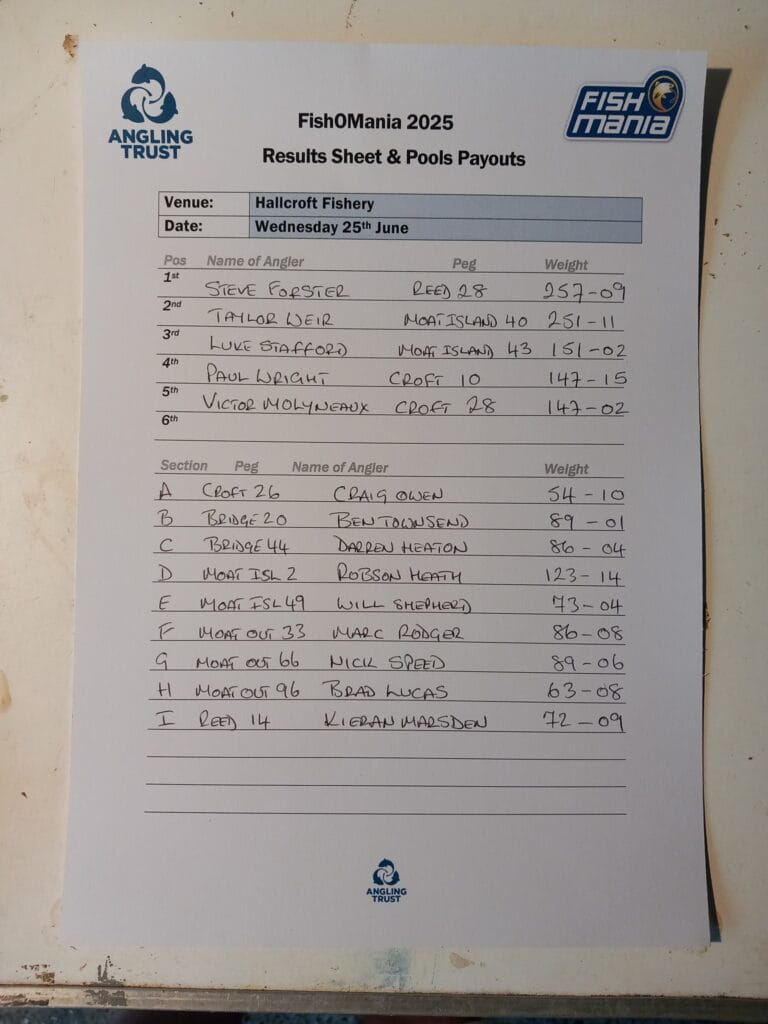 ANGLING
TRUST
FISH
MANIA
FishOMania 2025
Results Sheet & Pools Payouts
Venue: Hallcroft Fishery
Date: Wednesday 25th June
Pos Name of Angler Peg Weight
1st STEVE FORSTER REED 28 257-09
2nd TAYLOR WEIR MOAT ISLAND 40 251-11
3rd LUKE STAFFORD MOAT ISLAND 43 151-02
4th PAUL WRIGHT CROFT 10 147-15
5th VICTOR MOLYNEAUX CROFT 28 147-02
6th
Section Peg Name of Angler Weight
A CROFT 26 CRAIG OWEN 54-10
B BRIDGE 20 BEN TOWNSEND 89-01
C BRIDGE 44 DARREN HEATON 86-04
D MOAT ISL 2 ROBSON HEATH 123-14
E MOAT ISL 49 WILL SHEPHERD 73-04
F MOAT OUT 33 MARC RODGER 86-08
G MOAT OUT 66 NICK SPEED 89-06
H MOAT OUT 96 BRAD LUCAS 63-08
I REED 14 KIERAN MARSDEN 72-09
ANGLING
TRUST